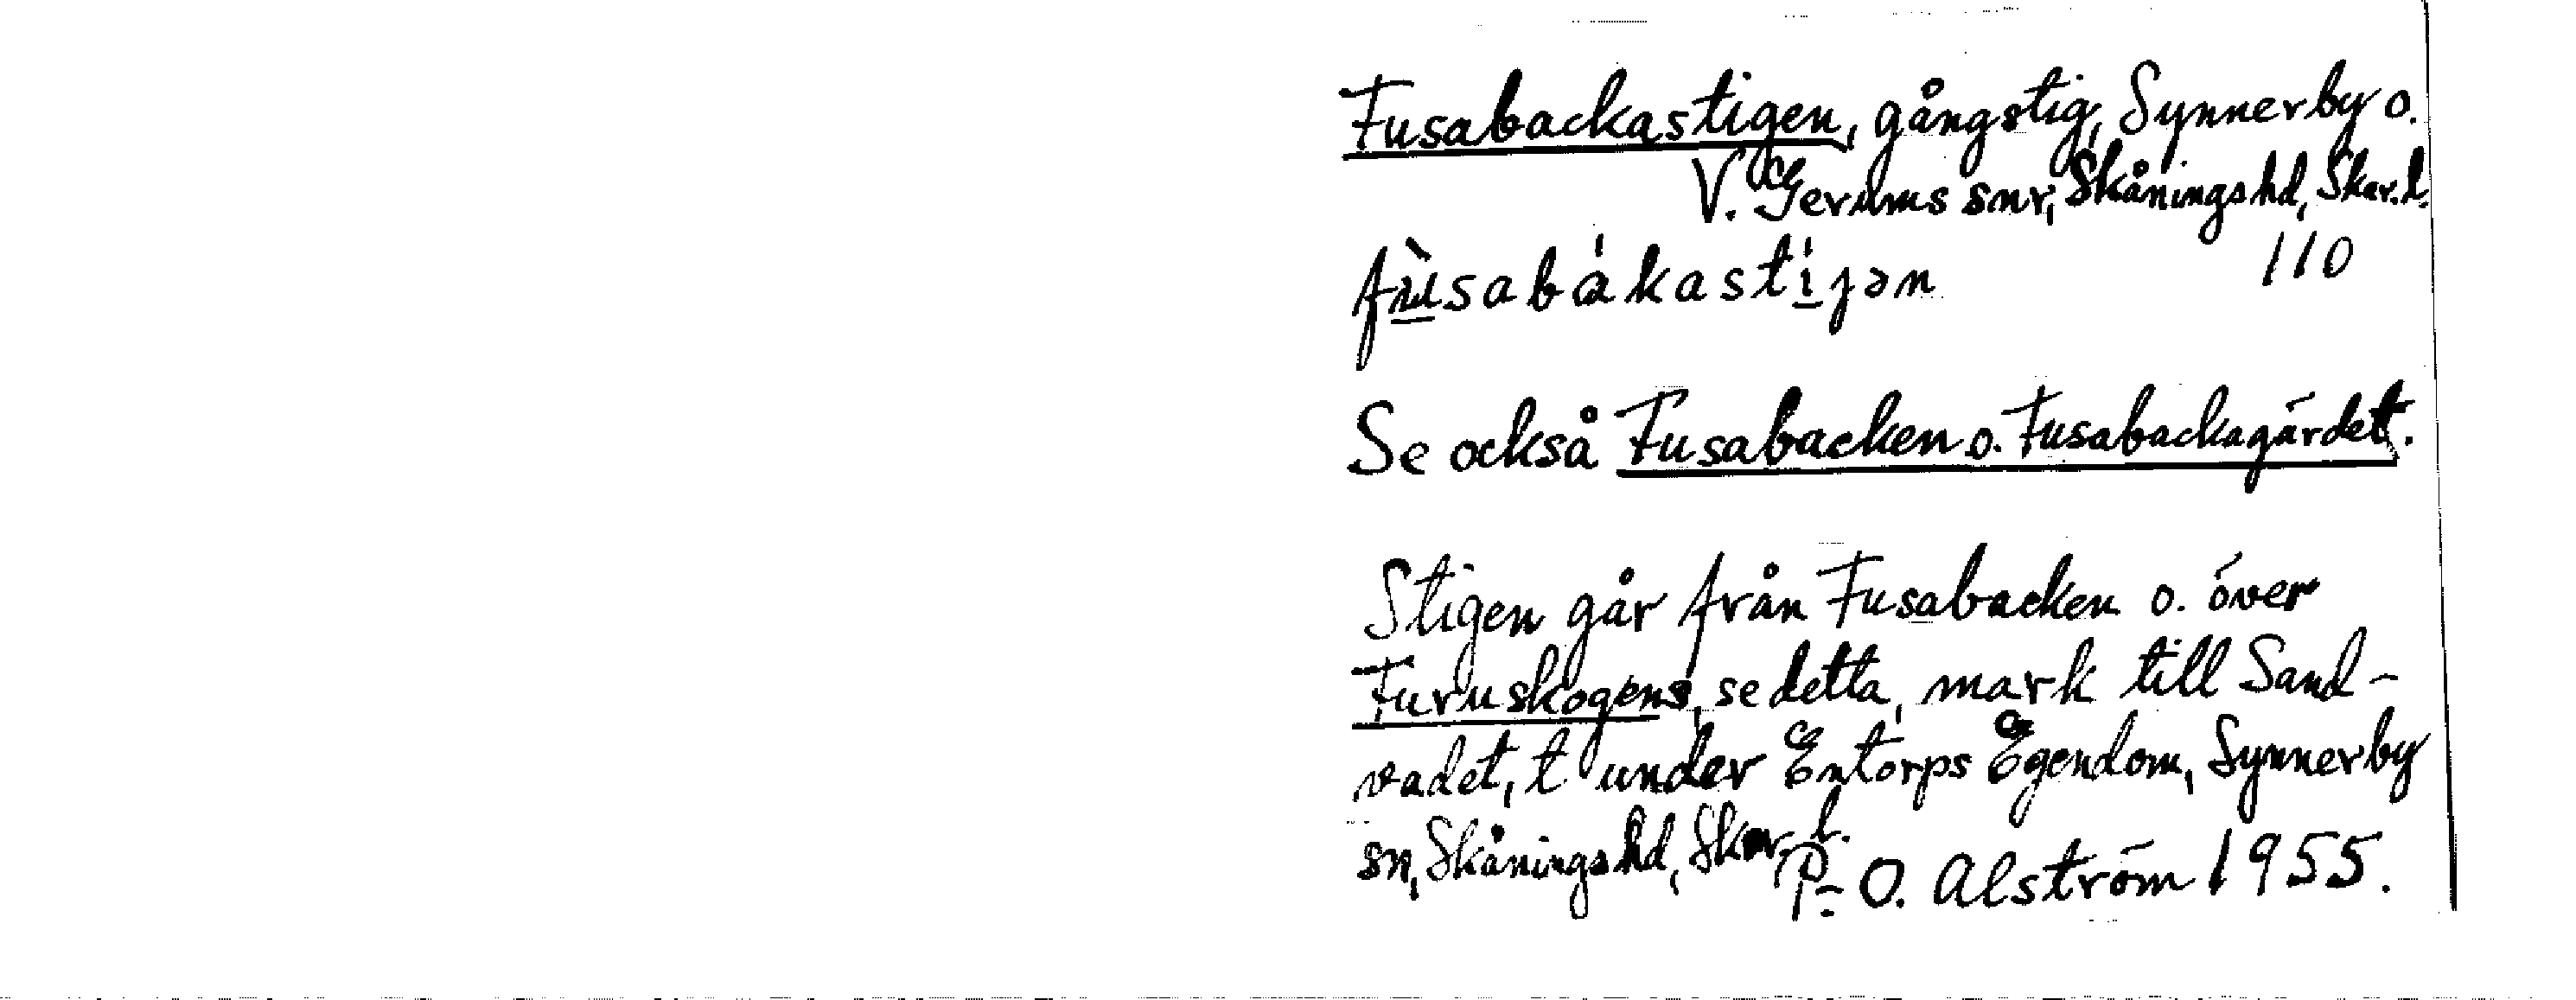 Fusabackastigen, gångstig, Synnerby o.
V. Gerums snr, Skånings hd, Skar. l.
110
fùsabákastíjən
Se också Fusabacken o. Fusabackagärdet.
Stigen går från Fusabacken o. över
Furuskogens, se detta, mark till Sand-
vadet, t under Entorps Egendom, Synnerby
sn, Skånings hd, Skar. l.
P.-O. Alström 1955.